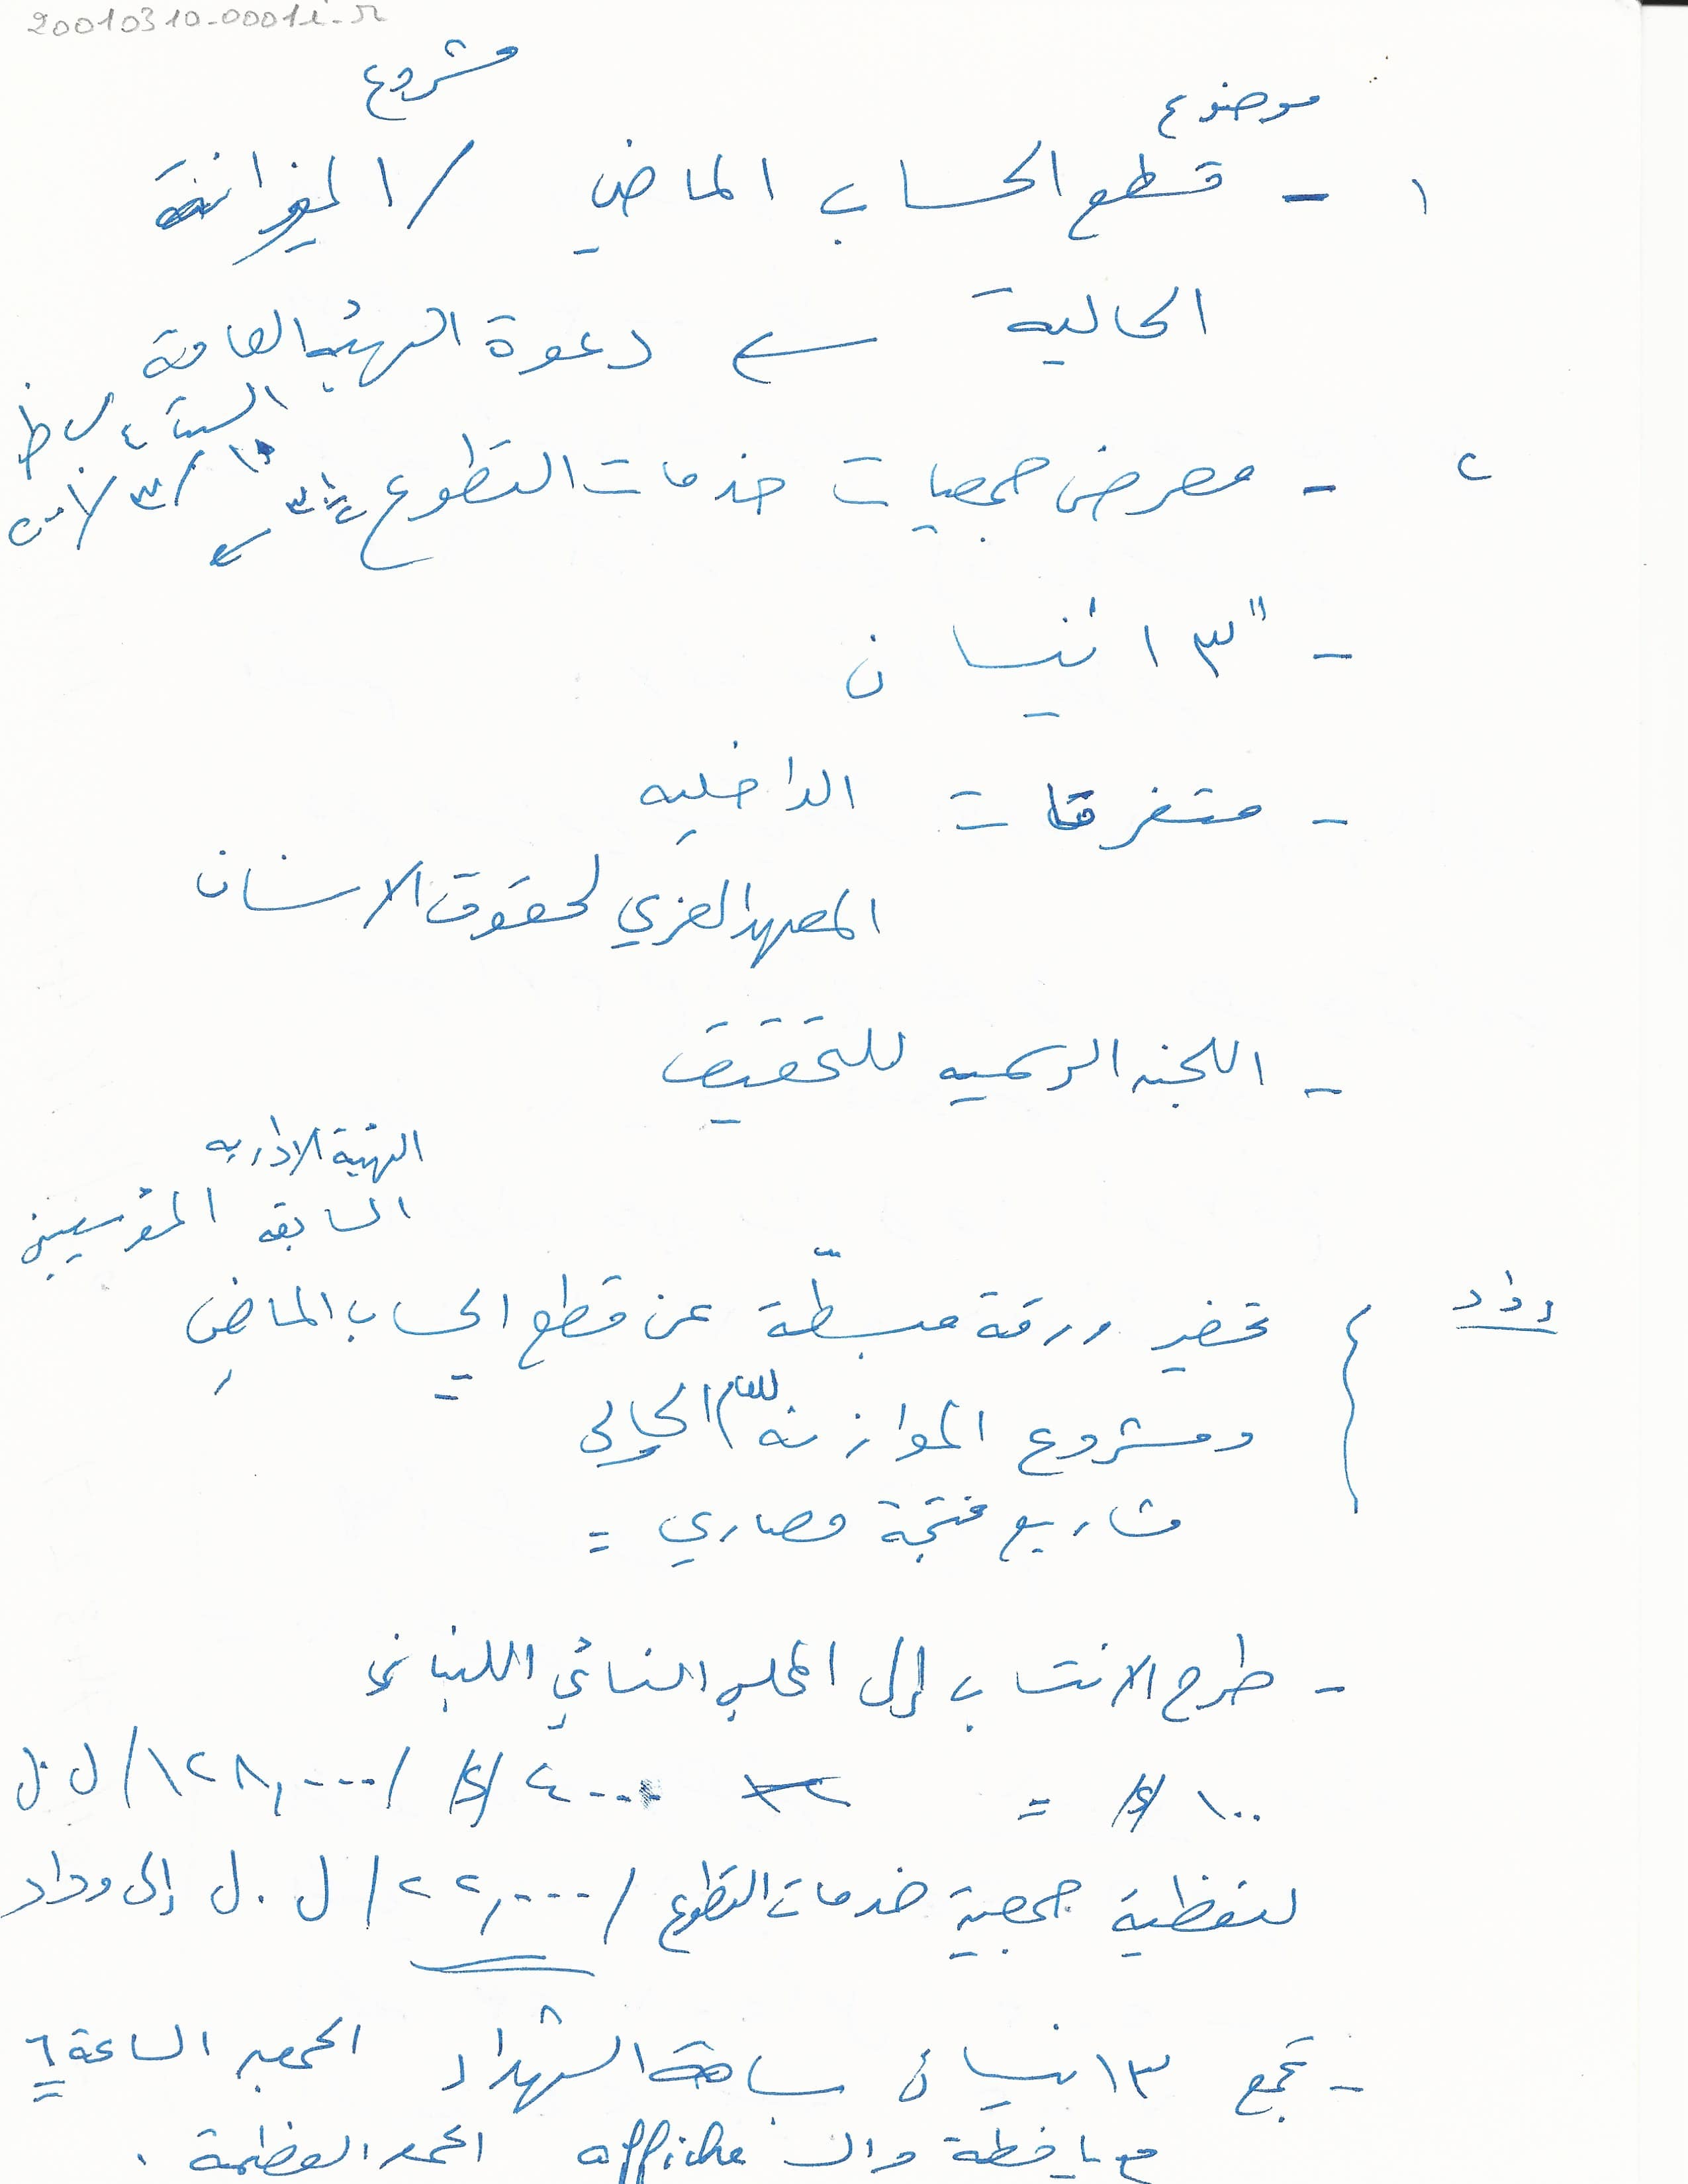 20010310-0001i-R
موضوع مشروع
١ - قطع الحساب الماضي / الميزانية
الحالية ← دعوة الهيئة العامة
السبت ٤ ب ظ
٢ - معرض جمعيات خدمات التطوع
- "١٣ نيسان
- متفرقات الداخليه
المعهد العربي لحقوق الانسان
- اللجنه الرسميه للتحقيق
الهيئة الاداريه
السابقه المؤسسين
وداد
تحضير ورقة مبسطّة عن قطع الحساب الماضي
ومشروع الموازنه للعام الحالي
مشاريع منتجة مصاري =
- طرح الانتساب إلى المجلس النسائي اللبناني
١٠٠ $ = /١٢٨,٠٠٠/ ل.ل
لتغطية جمعية خدمات التطوع /٢٢,٠٠٠/ ل.ل إلى وداد
- تجمع ١٣ نيسان ساحة الشهداء الجمعه الساعة ٦
مع يافطة وال affiche